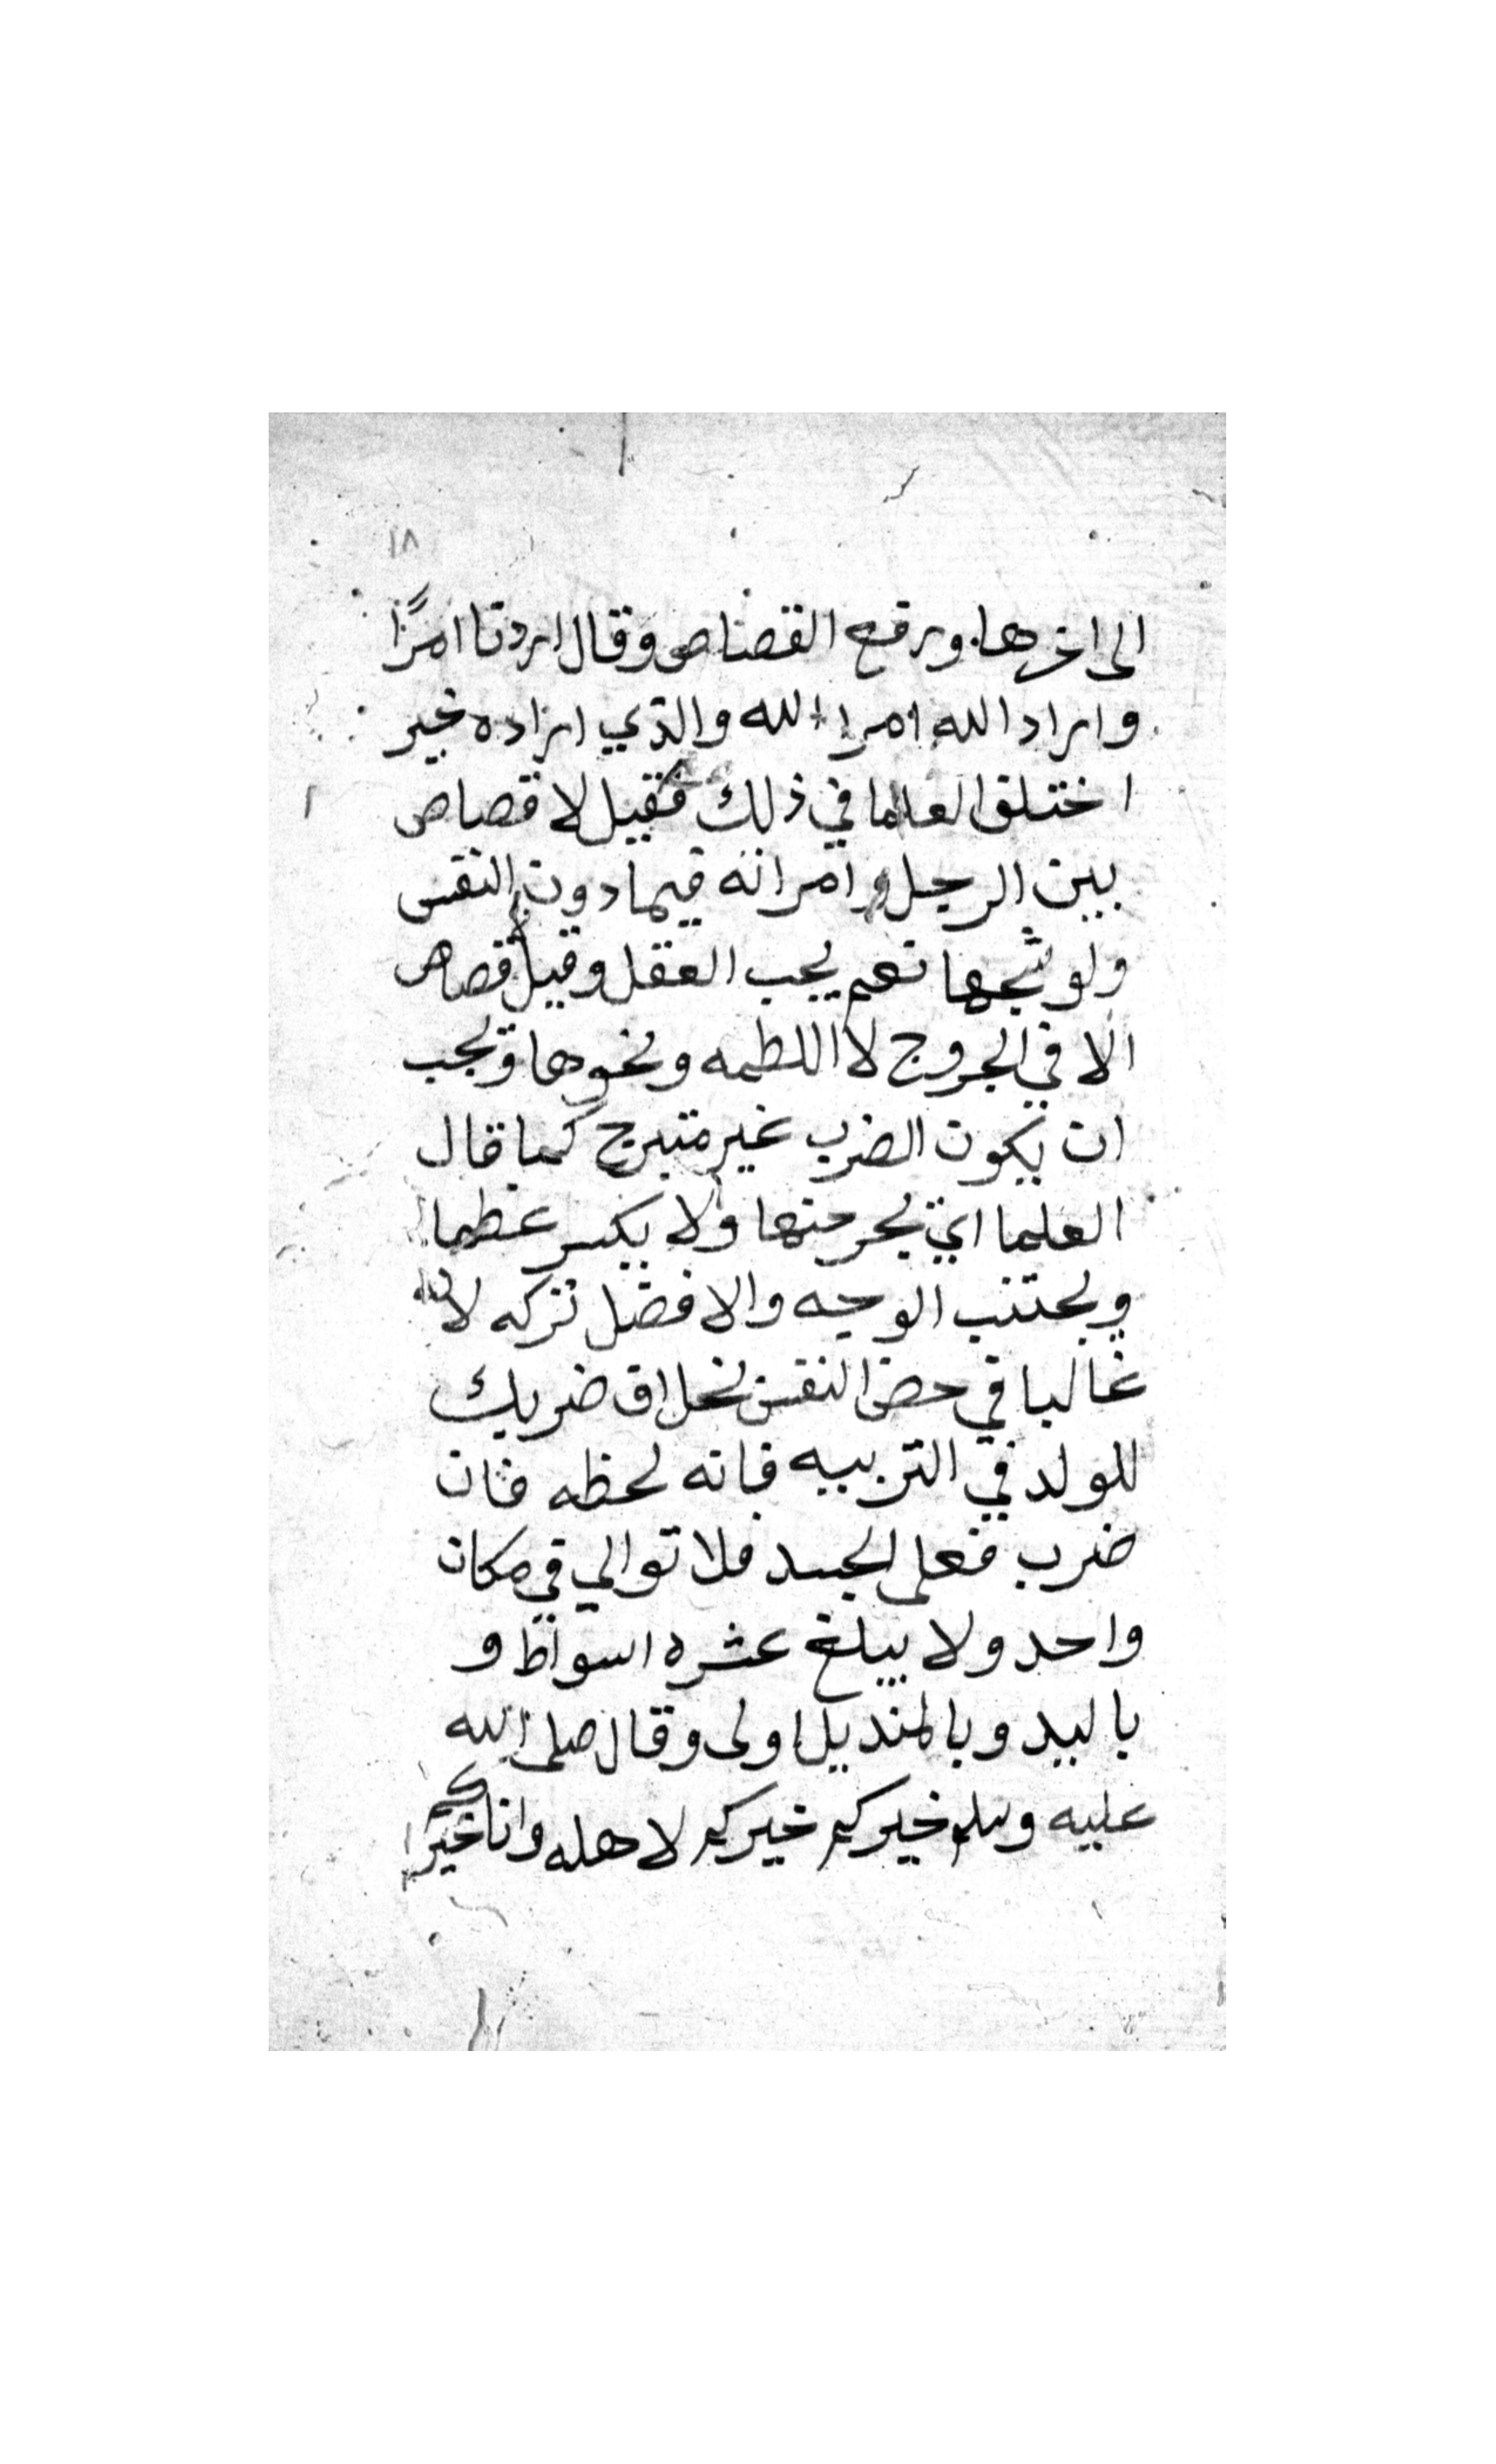 ١٨
الى اخرها ورفع القصاص وقال اردنا امرًا
واراد الله امرا الله والذي اراده خير
اختلف العلما في ذلك فقيل لا قصاص
بين الرجل وامراته فيما دون النفس
ولو شجها نعم يجب العقل وقيل لا قصاص
الا في الجروح لا اللطمه ونحوها ويجب
ان يكون الضرب غير متبرح كما قال
العلما اي يجرحها ولا يكسر عظما
ويجتنب الوجه والافضل تركه لانه
غالبا في حض النفس بخلاف ضربك
للولد في التربيه فانه لحظه فان
ضرب فعلى الجسد فلا توالي في مكان
واحد ولا يبلغ عشره اسواط و
باليد وبالمنديل اولى وقال صلى الله
عليه وسلم خيركم خيركم لاهله وانا خيركم